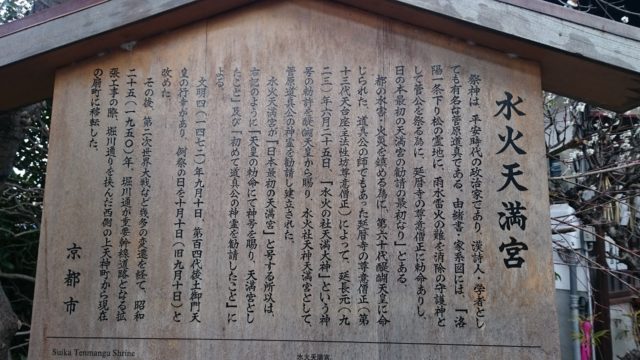 水火天満宮
祭神は、平安時代の政治家であり、漢詩人・学者とし
ても有名な菅原道真である。由緒書・家系図には、「洛
陽一条下り松の霊地に、雨水雷火の難を消除の守護神と
して菅公を祭る為に、延暦寺の尊意僧正に勅命ありし、
日の本最初の天満宮の勧請の最初なり」とある。
都の水害・火災を鎮める為に、第六十代醍醐天皇に命
じられた、道真公の師でもあった延暦寺の尊意僧正(第
十三代天台座主法性坊尊意僧正)によって、延長元(九
二三)年六月二十五日、「水火の社天満大神」という神
号の勅許を醍醐天皇から賜り、水火社天神天満宮として、
菅原道真公の神霊を勧請し建立された。
水火天満宮が「日本最初の天満宮」と号する所以は、
右記のように「天皇の勅命にて神号を賜り、天満宮とし
たこと」及び「初めて道真公の神霊を勧請したこと」に
よる。
文明四(一四七二)年九月十日、第百四代後土御門天
皇の行幸があり、例祭の日を十月十日(旧九月十日)と
改めた。
その後、第二次世界大戦など幾多の変遷を経て、昭和
二十五(一九五〇)年、堀川通が重要幹線道路となる拡
張工事の際、堀川通りを挟んだ西側の上天神町から現在
の扇町に移転した。
京都市
Suika Tenmangu Shrine
水火天満宮。